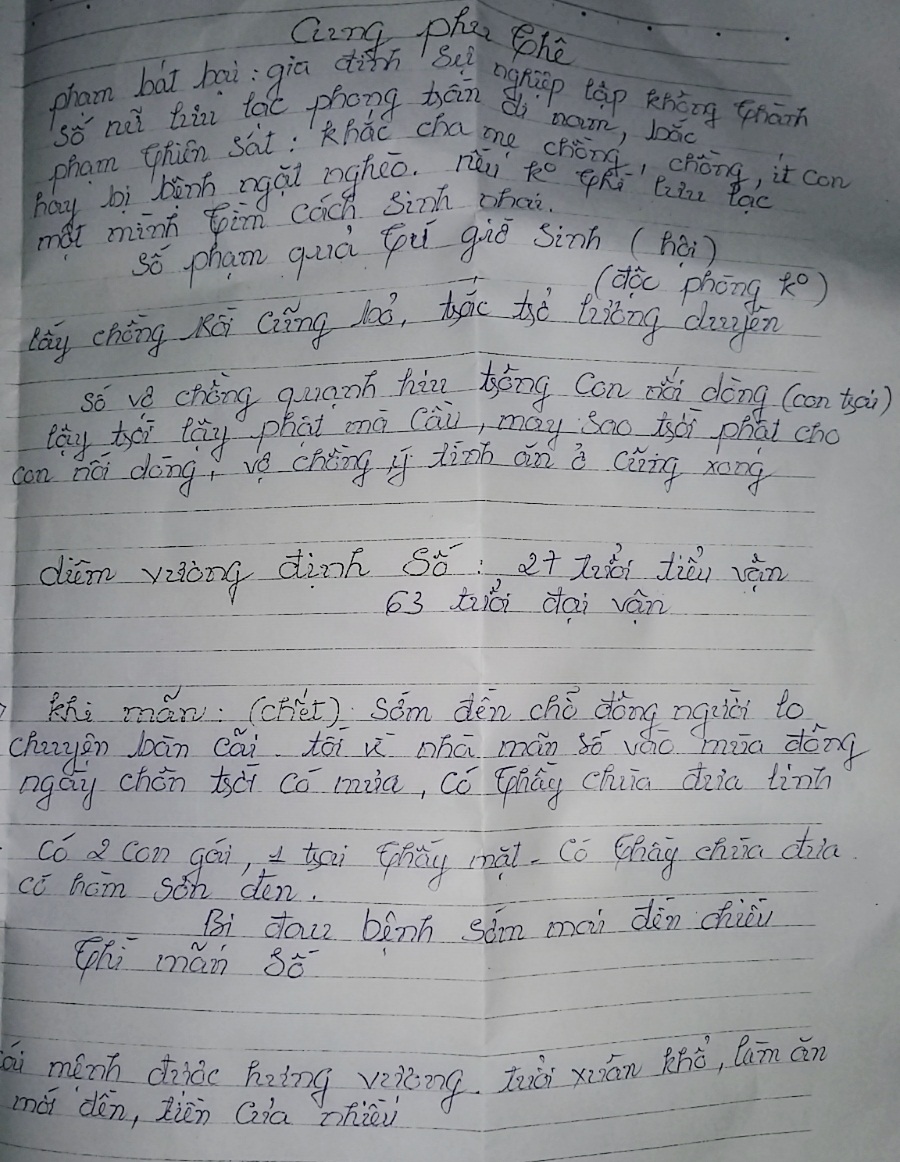 Cung phu thê
phạm bát bại : gia đình sự nghiệp lập không thành
số nữ lưu lạc phong trần đi nam, bắc
phạm thiên sát : khắc cha mẹ chồng, chồng, ít con
hay bị bệnh ngặt nghèo. nếu ko thì lưu lạc
một mình tìm cách sinh nhai.
số phạm quả tú giờ sinh (hội)
(độc phòng ko)
lấy chồng rồi cũng bỏ, trắc trở lương duyên
số vợ chồng quạnh hiu trông con nối dòng (con trai)
lạy trời lạy phật mà cầu, may sao trời phật cho
con nối dòng, vợ chồng ý tình ăn ở cũng xong
diêm vương định số : 27 tuổi tiểu vận
63 tuổi đại vận
khi mãn : (chết) sớm đến chỗ đông người lo
chuyện bàn cãi. tối về nhà mãn số vào mùa đông
ngày chôn trời có mưa, có thầy chùa đưa linh
có 2 con gái, 1 trai thấy mặt - có thầy chùa đưa.
có hòm sơn đen.
Bị đau bệnh sớm mai đến chiều
thì mãn số
mệnh được hưng vượng. tuổi xuân khổ, làm ăn
mới đến, tiền của nhiều